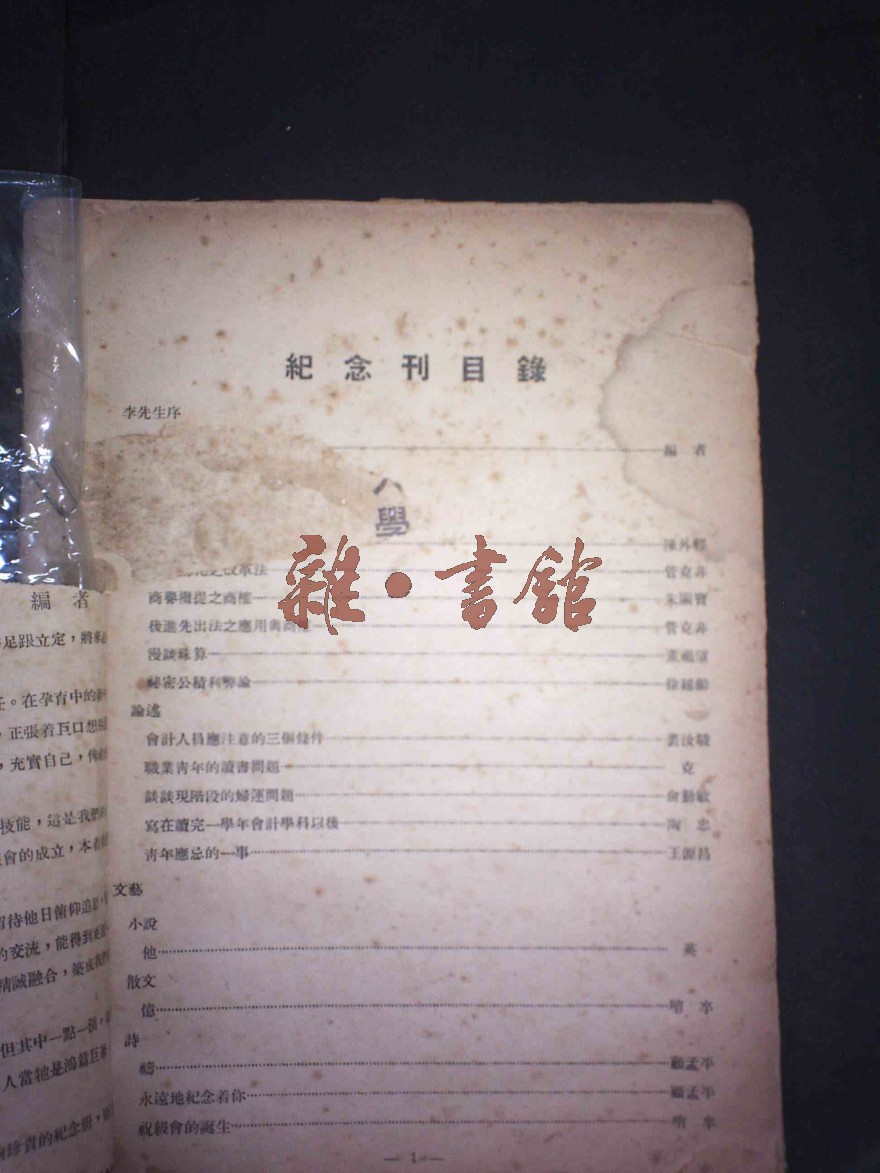 紀念刊目錄
李先生序
編者
八
學
陳外
之改革法 管克非
商譽攤提之商榷 朱
後進先出法之應用與商榷 管克非
漫談珠算
祕密公積利弊論 徐
論述
會計人員應注意的三個條件
職業青年的讀書問題 克
談談現階段的婦運問題 俞勤敏
寫在讀完一學年會計學科以後 陶忠
青年應忌的一事 王源昌
文藝
小說
他 英
散文
億
詩
顧孟平
永遠地紀念着你 顧孟平
祝級會的誕生
— 1 —
編者
足跟立定，將
。在孕育中的
，正張着巨口想
，充實自己，
技能，這是我們
會的成立，本着
留待他日俯仰追
的交流，能得到更
精誠融合，築成我們
但其中一點一滴，
人當牠是鴻篇巨
珍貴的紀念册，
雜·書館